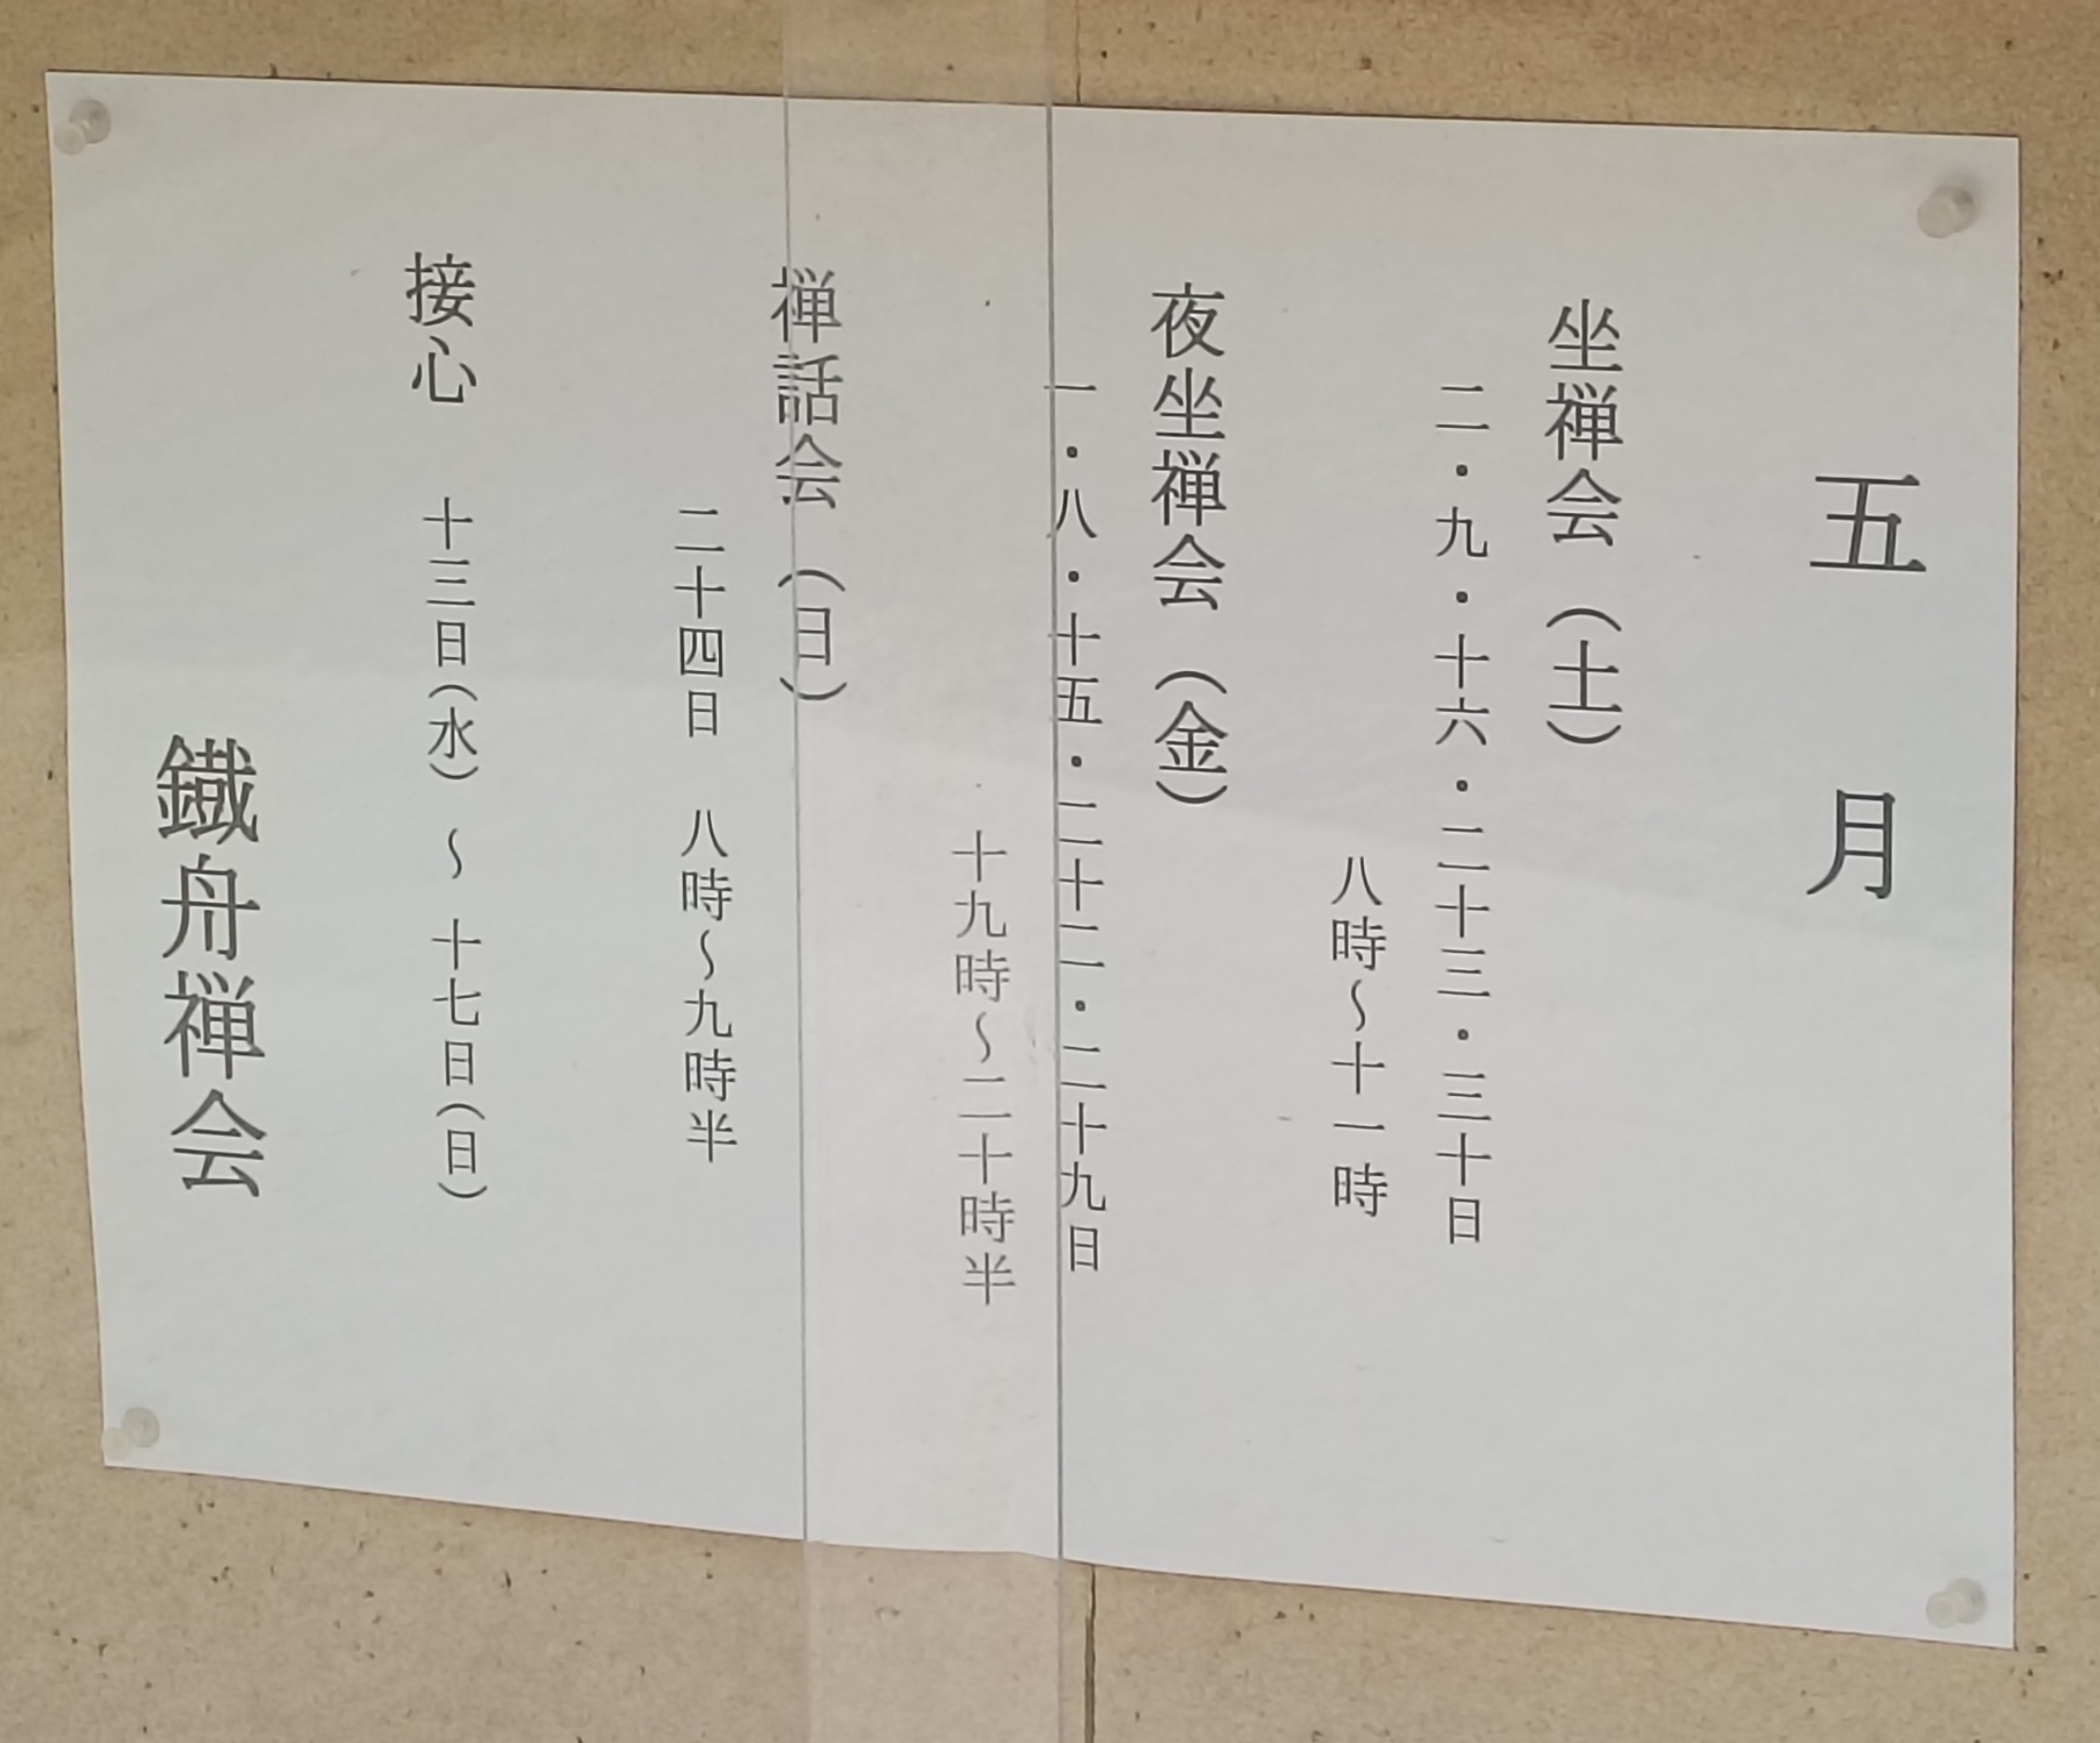 五月
坐禅会（土）
二・九・十六・二十三・三十日
八時～十一時
夜坐禅会（金）
一・八・十五・二十二・二十九日
十九時～二十時半
禅話会（日）
二十四日　八時～九時半
接心　十三日（水）　～　十七日（日）
鐵舟禅会